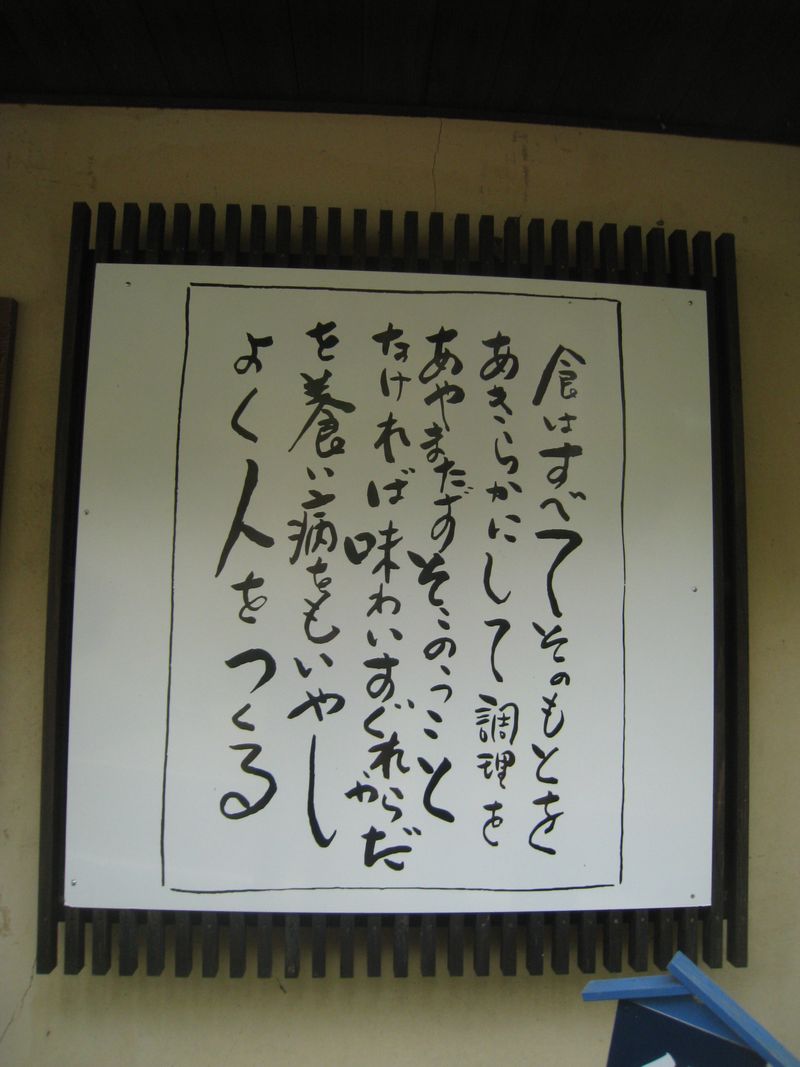 食はすべてそのもとを
あきらかにして調理を
あやまたずそこのうこと
なければ味わいすぐれからだ
を養い病をもいやし
よく人をつくる